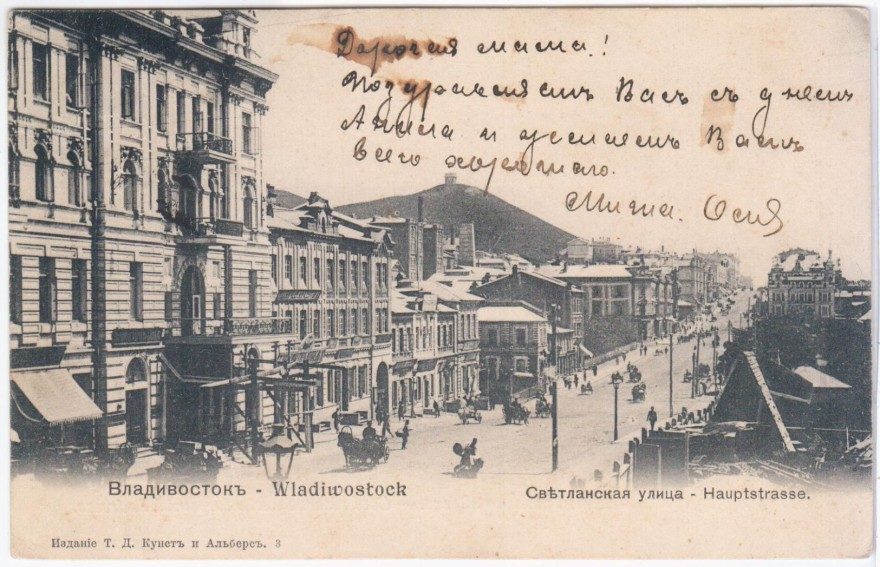 Дорогая мама!
Поздравляем Васъ съ днемъ
Ангела и желаемъ Вамъ
всего хорошаго.
Миша. Осия
Владивостокъ - Wladiwostock
Свѣтланская улица - Hauptstrasse.
Изданіе Т. Д. Кунстъ и Альберсъ. 3